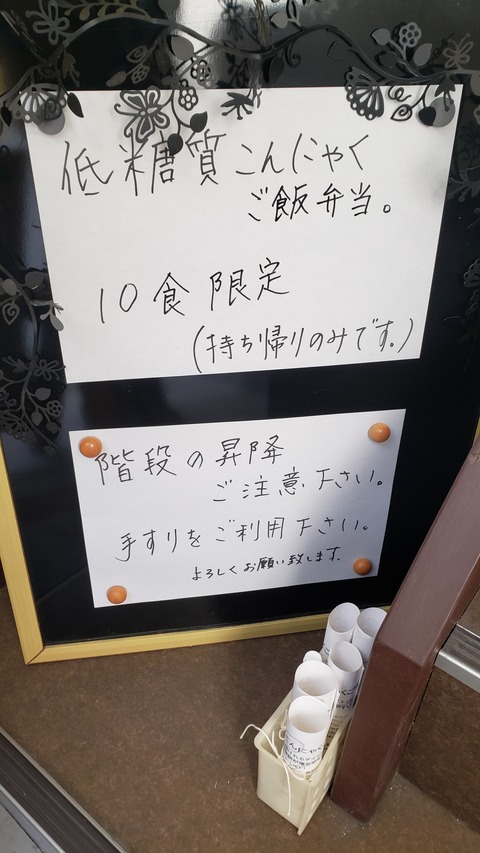 低糖質こんにゃく
ご飯弁当。
10食限定
(持ち帰りのみです。)
階段の昇降
ご注意下さい。
手すりをご利用下さい。
よろしくお願い致します。